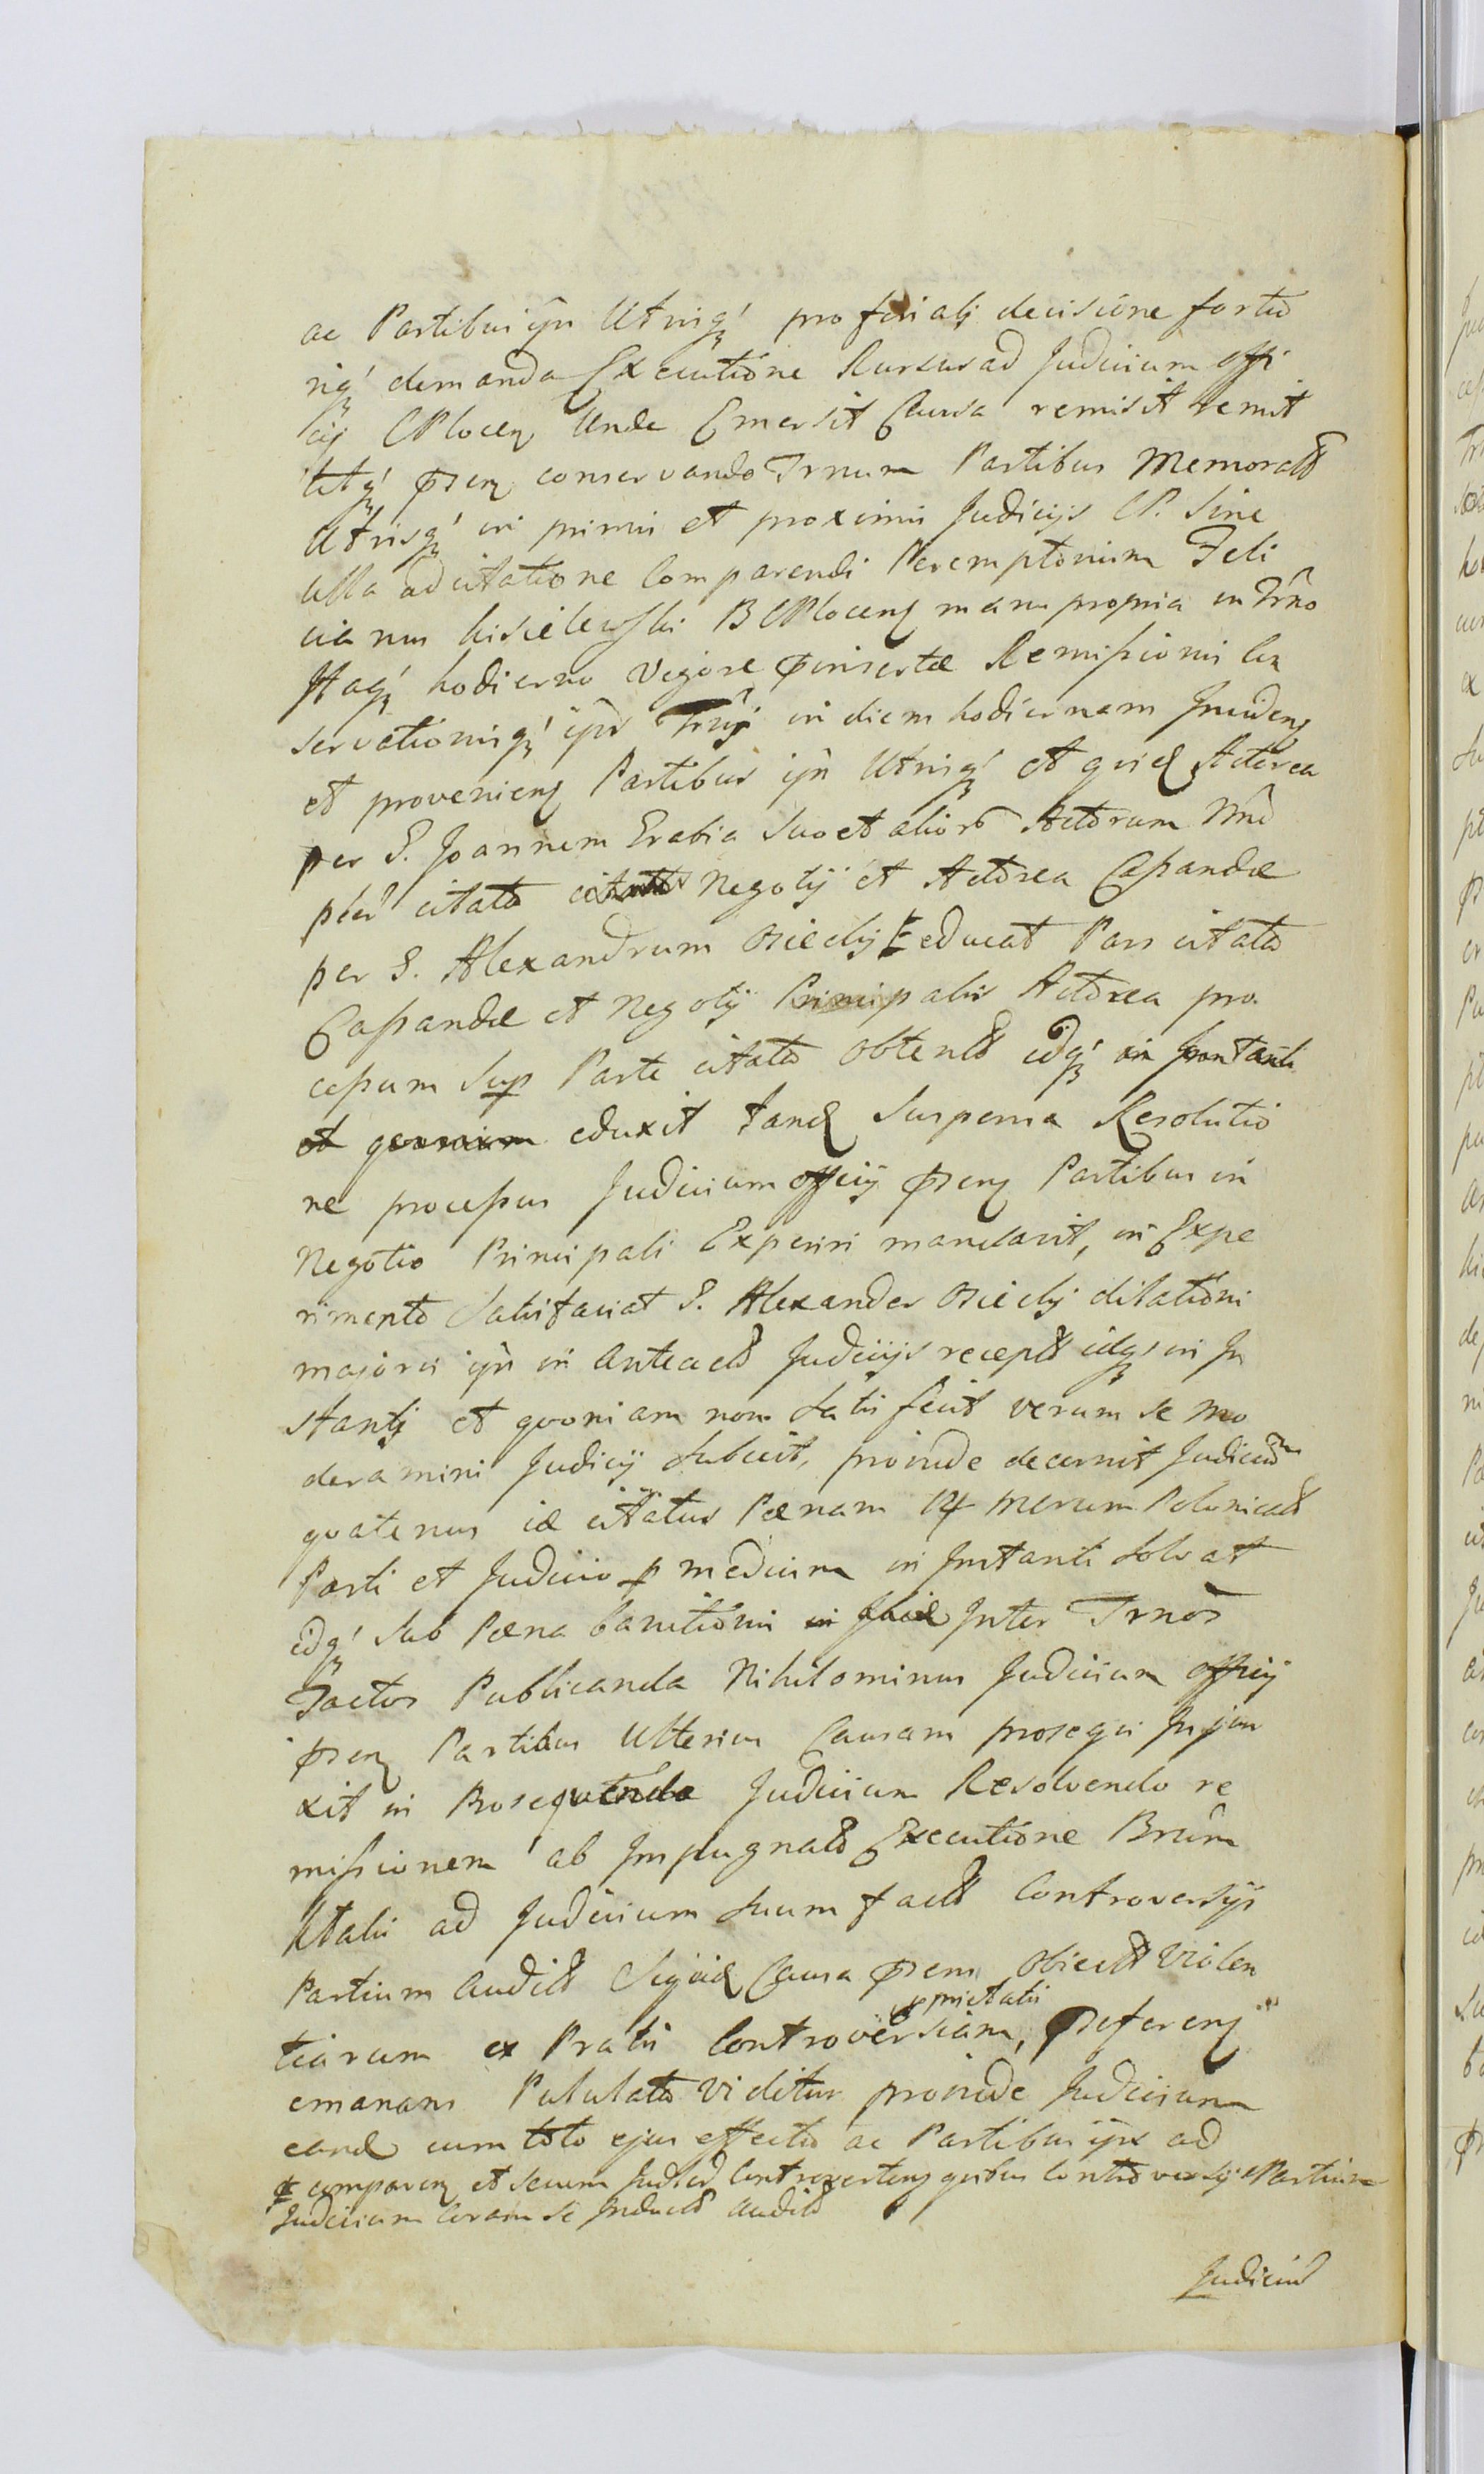 ac Partibus ijs Utrisq́ pro finali decisione fortio
riq́ demanda Executione Rursus ad Judicium offi
cij CPlocen Unde Emersit Causa remisit remit
titq́ pñsen conservando Trnum Partibus Memoratis
Utrisq́ in primis et proximis Judicijs CP. Sine
ulla adcitatione Comparendi Peremptorium Feli
cianus Kisielewski BCPlocens manu propria in Trno
Itaq́ hodierno Vigore pinsertæ Remissionis Con
servationisq́ ijs Trnj in diem hodiernam Inciden
et provenien Partibus ijs Utrisq́ et quid Actorea
per G. Joannem Grabia suo et alior Actorum Nne
citata Negotij et Actorea Cassandæ
per G. Alexandrum Osiecky educat Pars citata
Cassandæ et Negotij Principalis Actorea pro
cessum Sup Parte citata obtent idq́ in Instanti
et quoniam eduxit tand Suspensa Resolutio
ne processus Judicium officij pñsen Partibus in
Negotio Principali Experiri mandavit, in Expe
rimento Satisfaciat G. Alexander Osiecky dilationi
majoris ijs in anteact Judicijs recept idq in In
stantj et quoniam non Satis fecit verum se mo
deramini Judicij Subiecit, proinde decernit Judicium
quatenus id citatus Pænam 14 Marcarum Polonicali
Parti et Judicio p medium in Instanti Solvat
idq́ sub Pæna banitionis in Inter Trnos
Factos Publicanda Nihilominus Judicium officij
pñsen Partibus Ulterius Causam prosequi Injun
xit in Prosequenda Judicium Resolvendo re
missionem ab Impugnat Executione Brum
Utalis ad Judicium Suum fact Controversijs
Partium audit Siquid Causa pñsens obiect Violen
prietatis
tiarum ex Pratis Controversiam, pseferens
emanans Pululata Viditur proinde Judicium
eand cum toto ejus effectu ac Partibus ijs ad
comparen et secum Judter Controverten quibus Controversijs Partium
Judicium Coram se Induct audit
Judicium